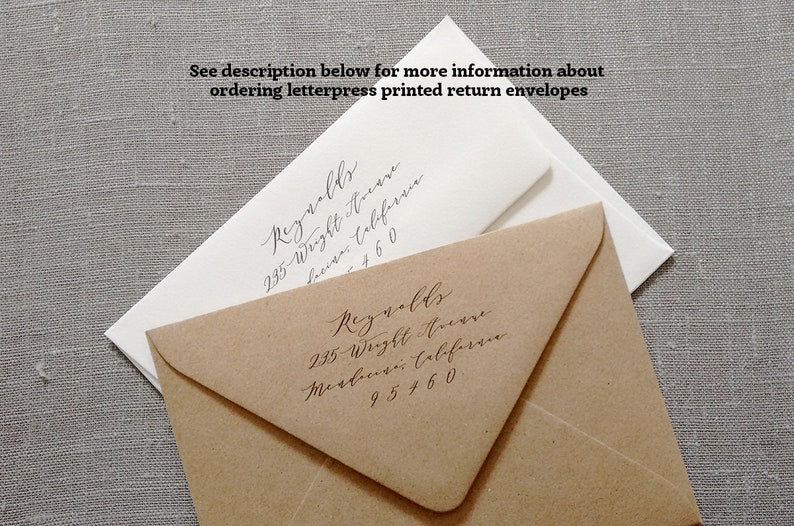 See description below for more information about
ordering letterpress printed return envelopes
Reynolds
235 Wright Avenue
docino, California
5 4 6 0
Reynolds
235 Wright Avenue
Mendocino, California
9 5 4 6 0